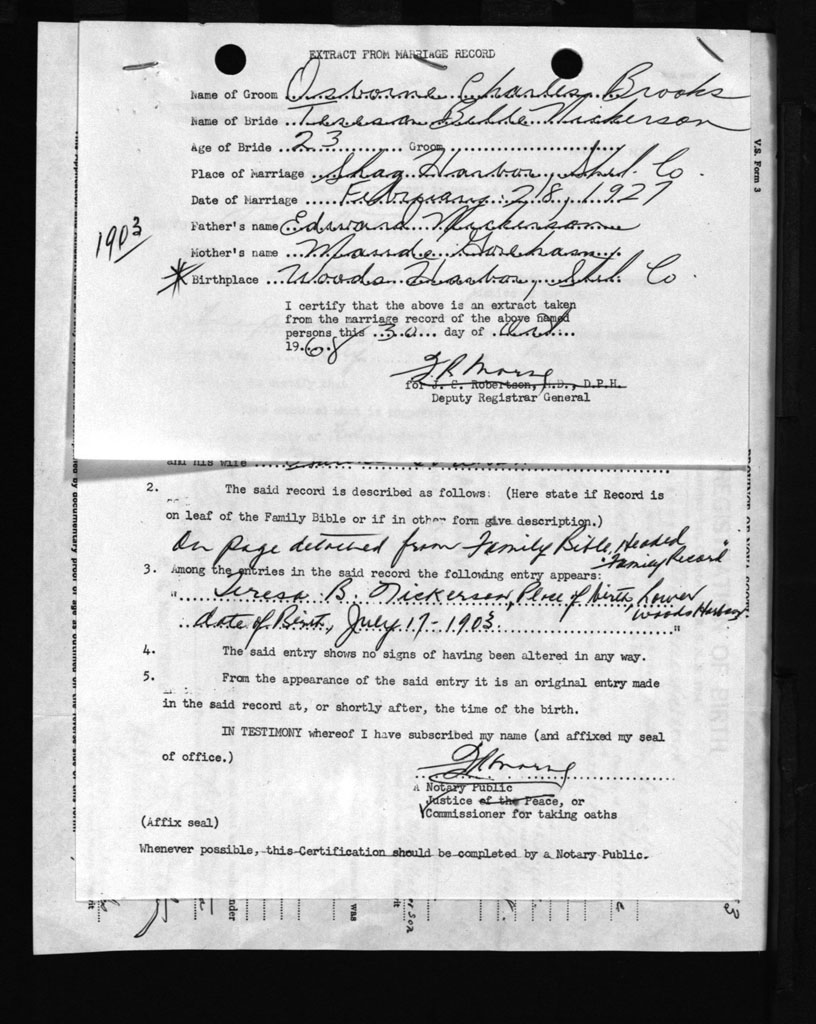 EXTRACT FROM MARRIAGE RECORD
Name of Groom Osborne Charles Brooks
Name of Bride Teresa Belle Nickerson
Age of Bride 23 Groom
Place of Marriage Shag Harbor, Shel. Co.
Date of Marriage February 28, 1927
Father's name Edward Nickerson
1903
Mother's name Maude Goreham
* Birthplace Woods Harbor, Shel. Co.
I certify that the above is an extract taken
from the marriage record of the above named
persons this 30 day of Oct
1968
for J. C. Robertson, M.D., D.P.H.
Deputy Registrar General
V.S. Form 3
and his wife
2. The said record is described as follows: (Here state if Record is
on leaf of the Family Bible or if in other form give description.)
On page detached from Family Bible, Headed
"Family Record"
3. Among the entries in the said record the following entry appears:
"Teresa B. Nickerson, Place of birth, Lower
Woods Harbor
date of Birth, July 17-1903"
4. The said entry shows no signs of having been altered in any way.
5. From the appearance of the said entry it is an original entry made
in the said record at, or shortly after, the time of the birth.
IN TESTIMONY whereof I have subscribed my name (and affixed my seal
of office.)
A Notary Public
Justice of the Peace, or
Commissioner for taking oaths
(Affix seal)
Whenever possible, this Certification should be completed by a Notary Public.
nder
was